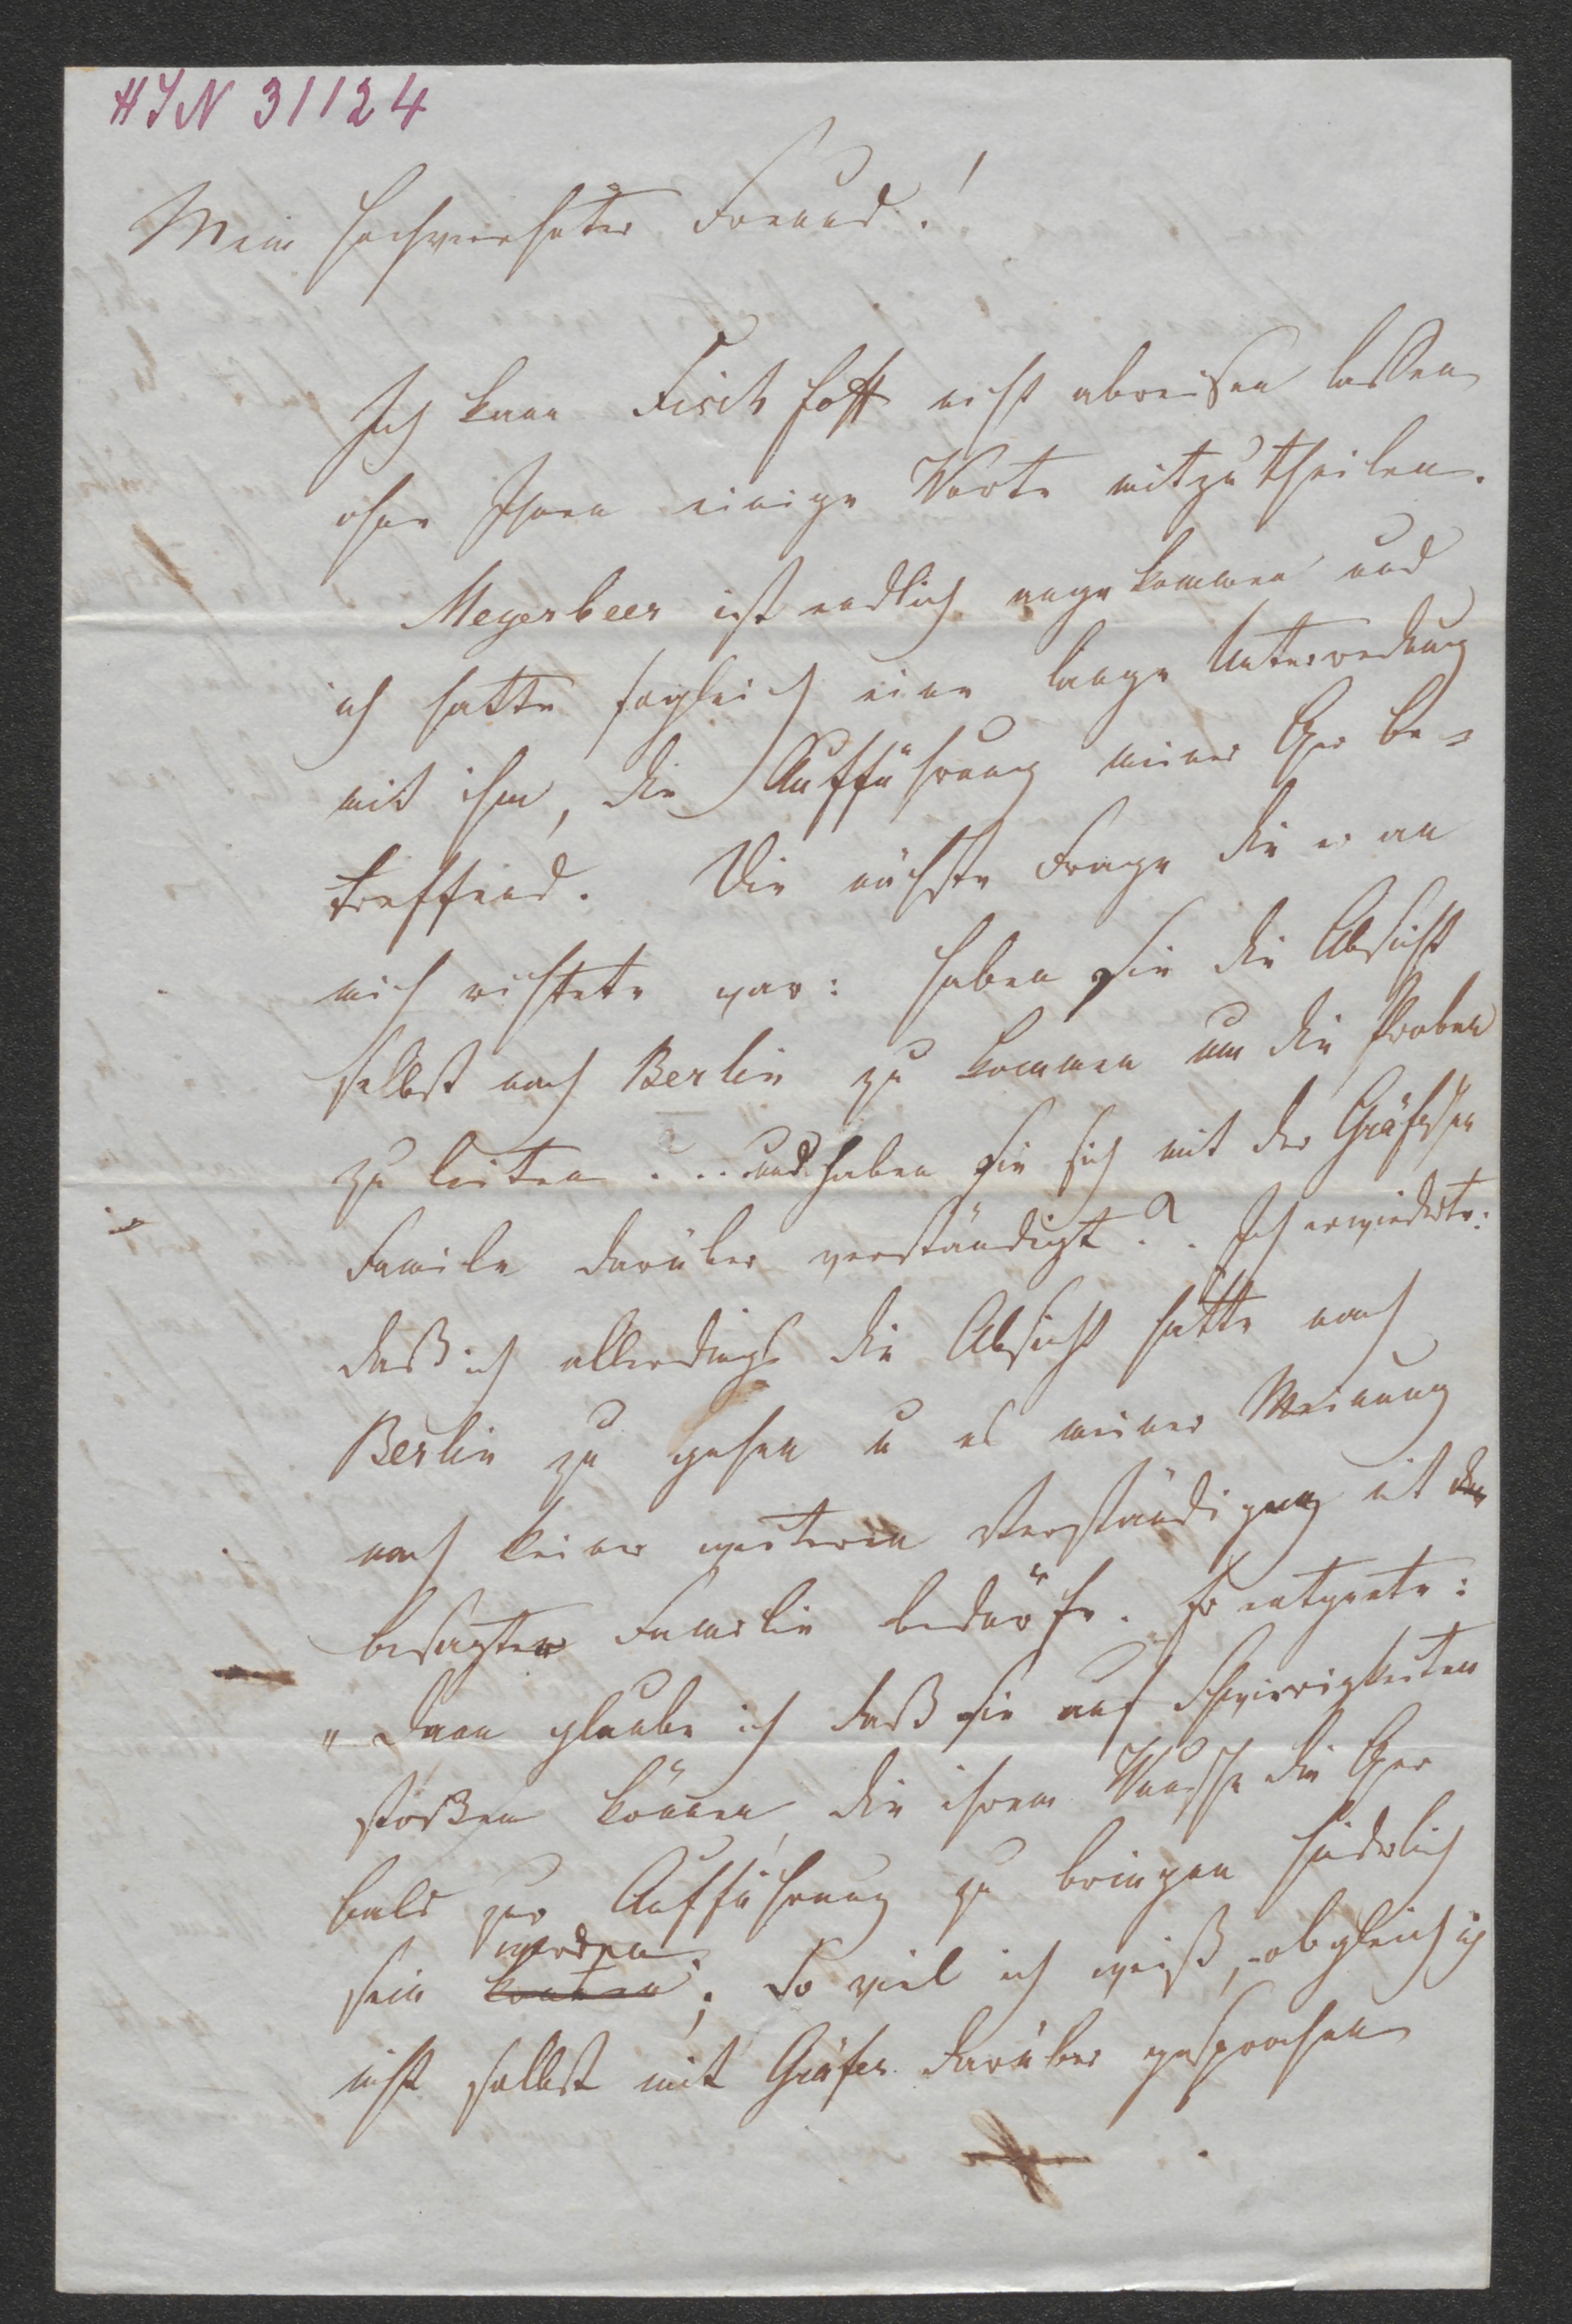 HIN 31124
Mein hochverehrter Freund!
Ich kann Fischhoff nicht abreisen lassen
ohne Ihnen einige Worte mitzutheilen.
Meyerbeer ist endlich angekommen und
ich hatte sogleich eine lange Unterredung
mit ihm, die Aufführung meiner Oper be-
treffend. Die nächste Frage die er an
mich richtete war: haben Sie die Absicht
selbst nach Berlin zu kommen um die Proben
zu leiten ... und haben Sie sich mit der
Familie darüber verständigt? . Ich erwiederte:
daß ich allerdings die Absicht hätte nach
Berlin zu gehen u es meiner Meinung
nach keiner weiteren Verständigung mit der
besagten Familie bedürfe. Er entgnete:
„Dann glaube ich daß Sie auf Schwierigkeiten
stoßen können, die ihrem Wunsche die Oper
bald zur Aufführung zu bringen hinderlich
werden
sein könten; So viel ich weiß, obgleich ich
nicht selbst mit darüber gesprochen